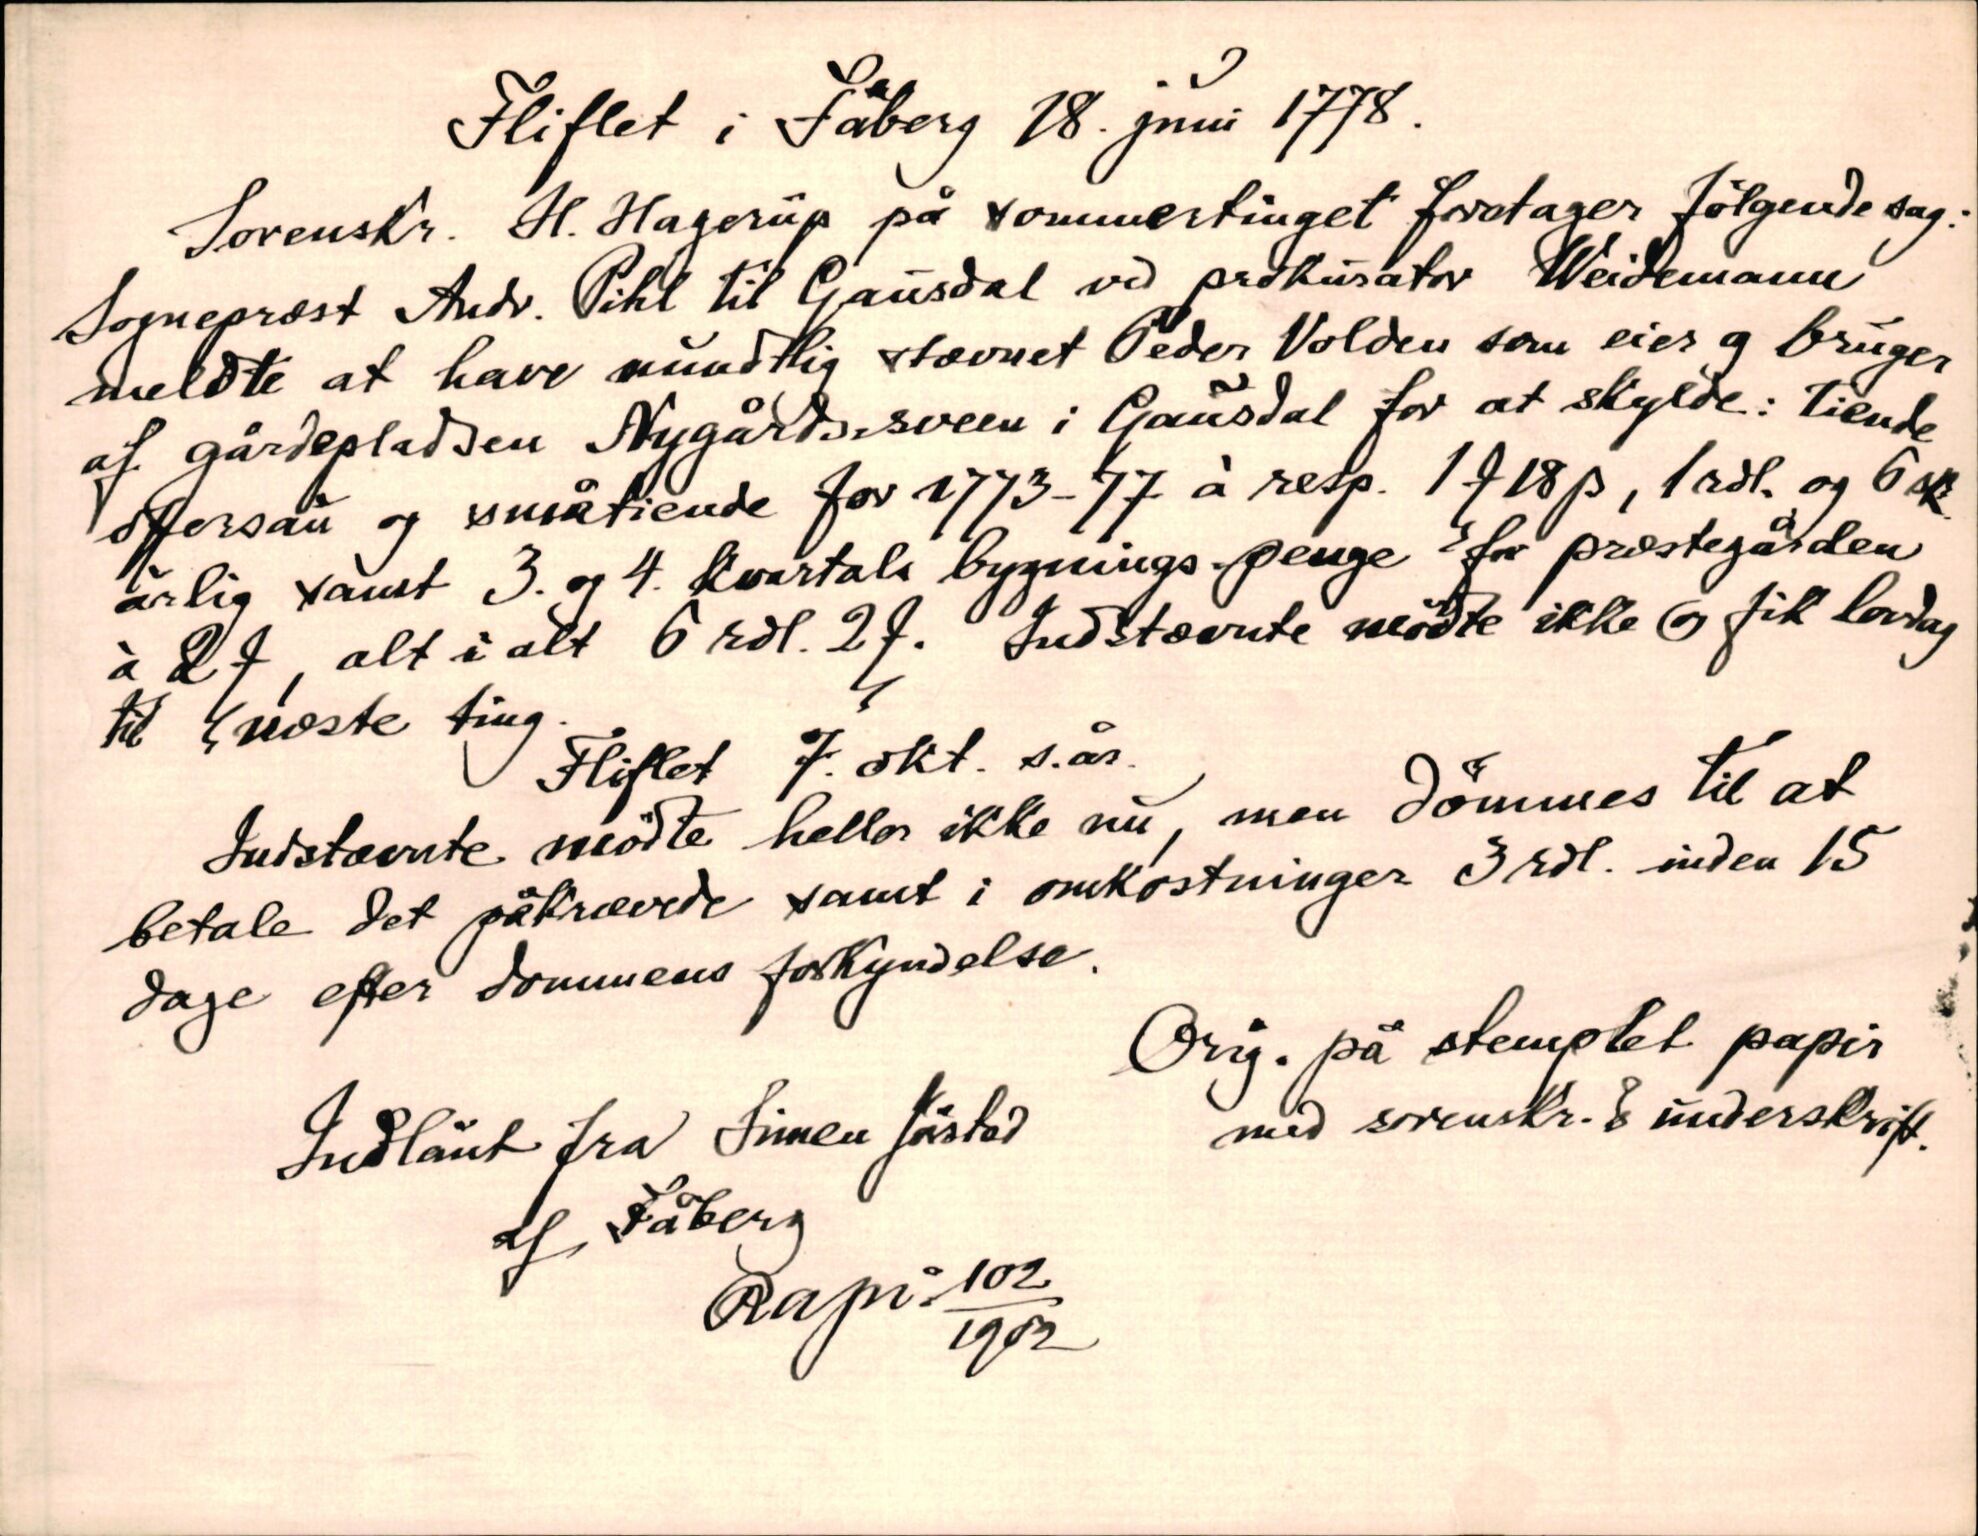 Fliflet i Fåberg 18. juni 1778.
Sorenskr. H. Hagerup på sommertinget foretager følgende sag:
Sogneprest Andr. Pihl til Gausdal ved prokurator Weidemann
meldte at have mundtlig stævnet Peder Volden som eier og bruger
af gårdepladsen Nygårdssveen i Gausdal for at skylde: tiende
offersau og småtiende for 1773-77 à resp. 1 ƒ 18 β, 1 rdl. og 6 sk
årlig samt 3. og 4. kvartals bygnings-penge for præstegården
à 2 ƒ, alt i alt 6 rdl. 2 ƒ. Indstævnte mødte ikke og fik lovdag
til næste ting.
Fliflet 7. okt. s.år.
Indstævnte mødte heller ikke nu, men dömmes til at
betale det påkrævede samt i omkostninger 3 rdl. inden 15
dage efter dommens forkyndelse.
Orig. på stemplet papir
med sorenskr.s underskrift.
Indlånt fra Simen
af Fåberg
102
1902